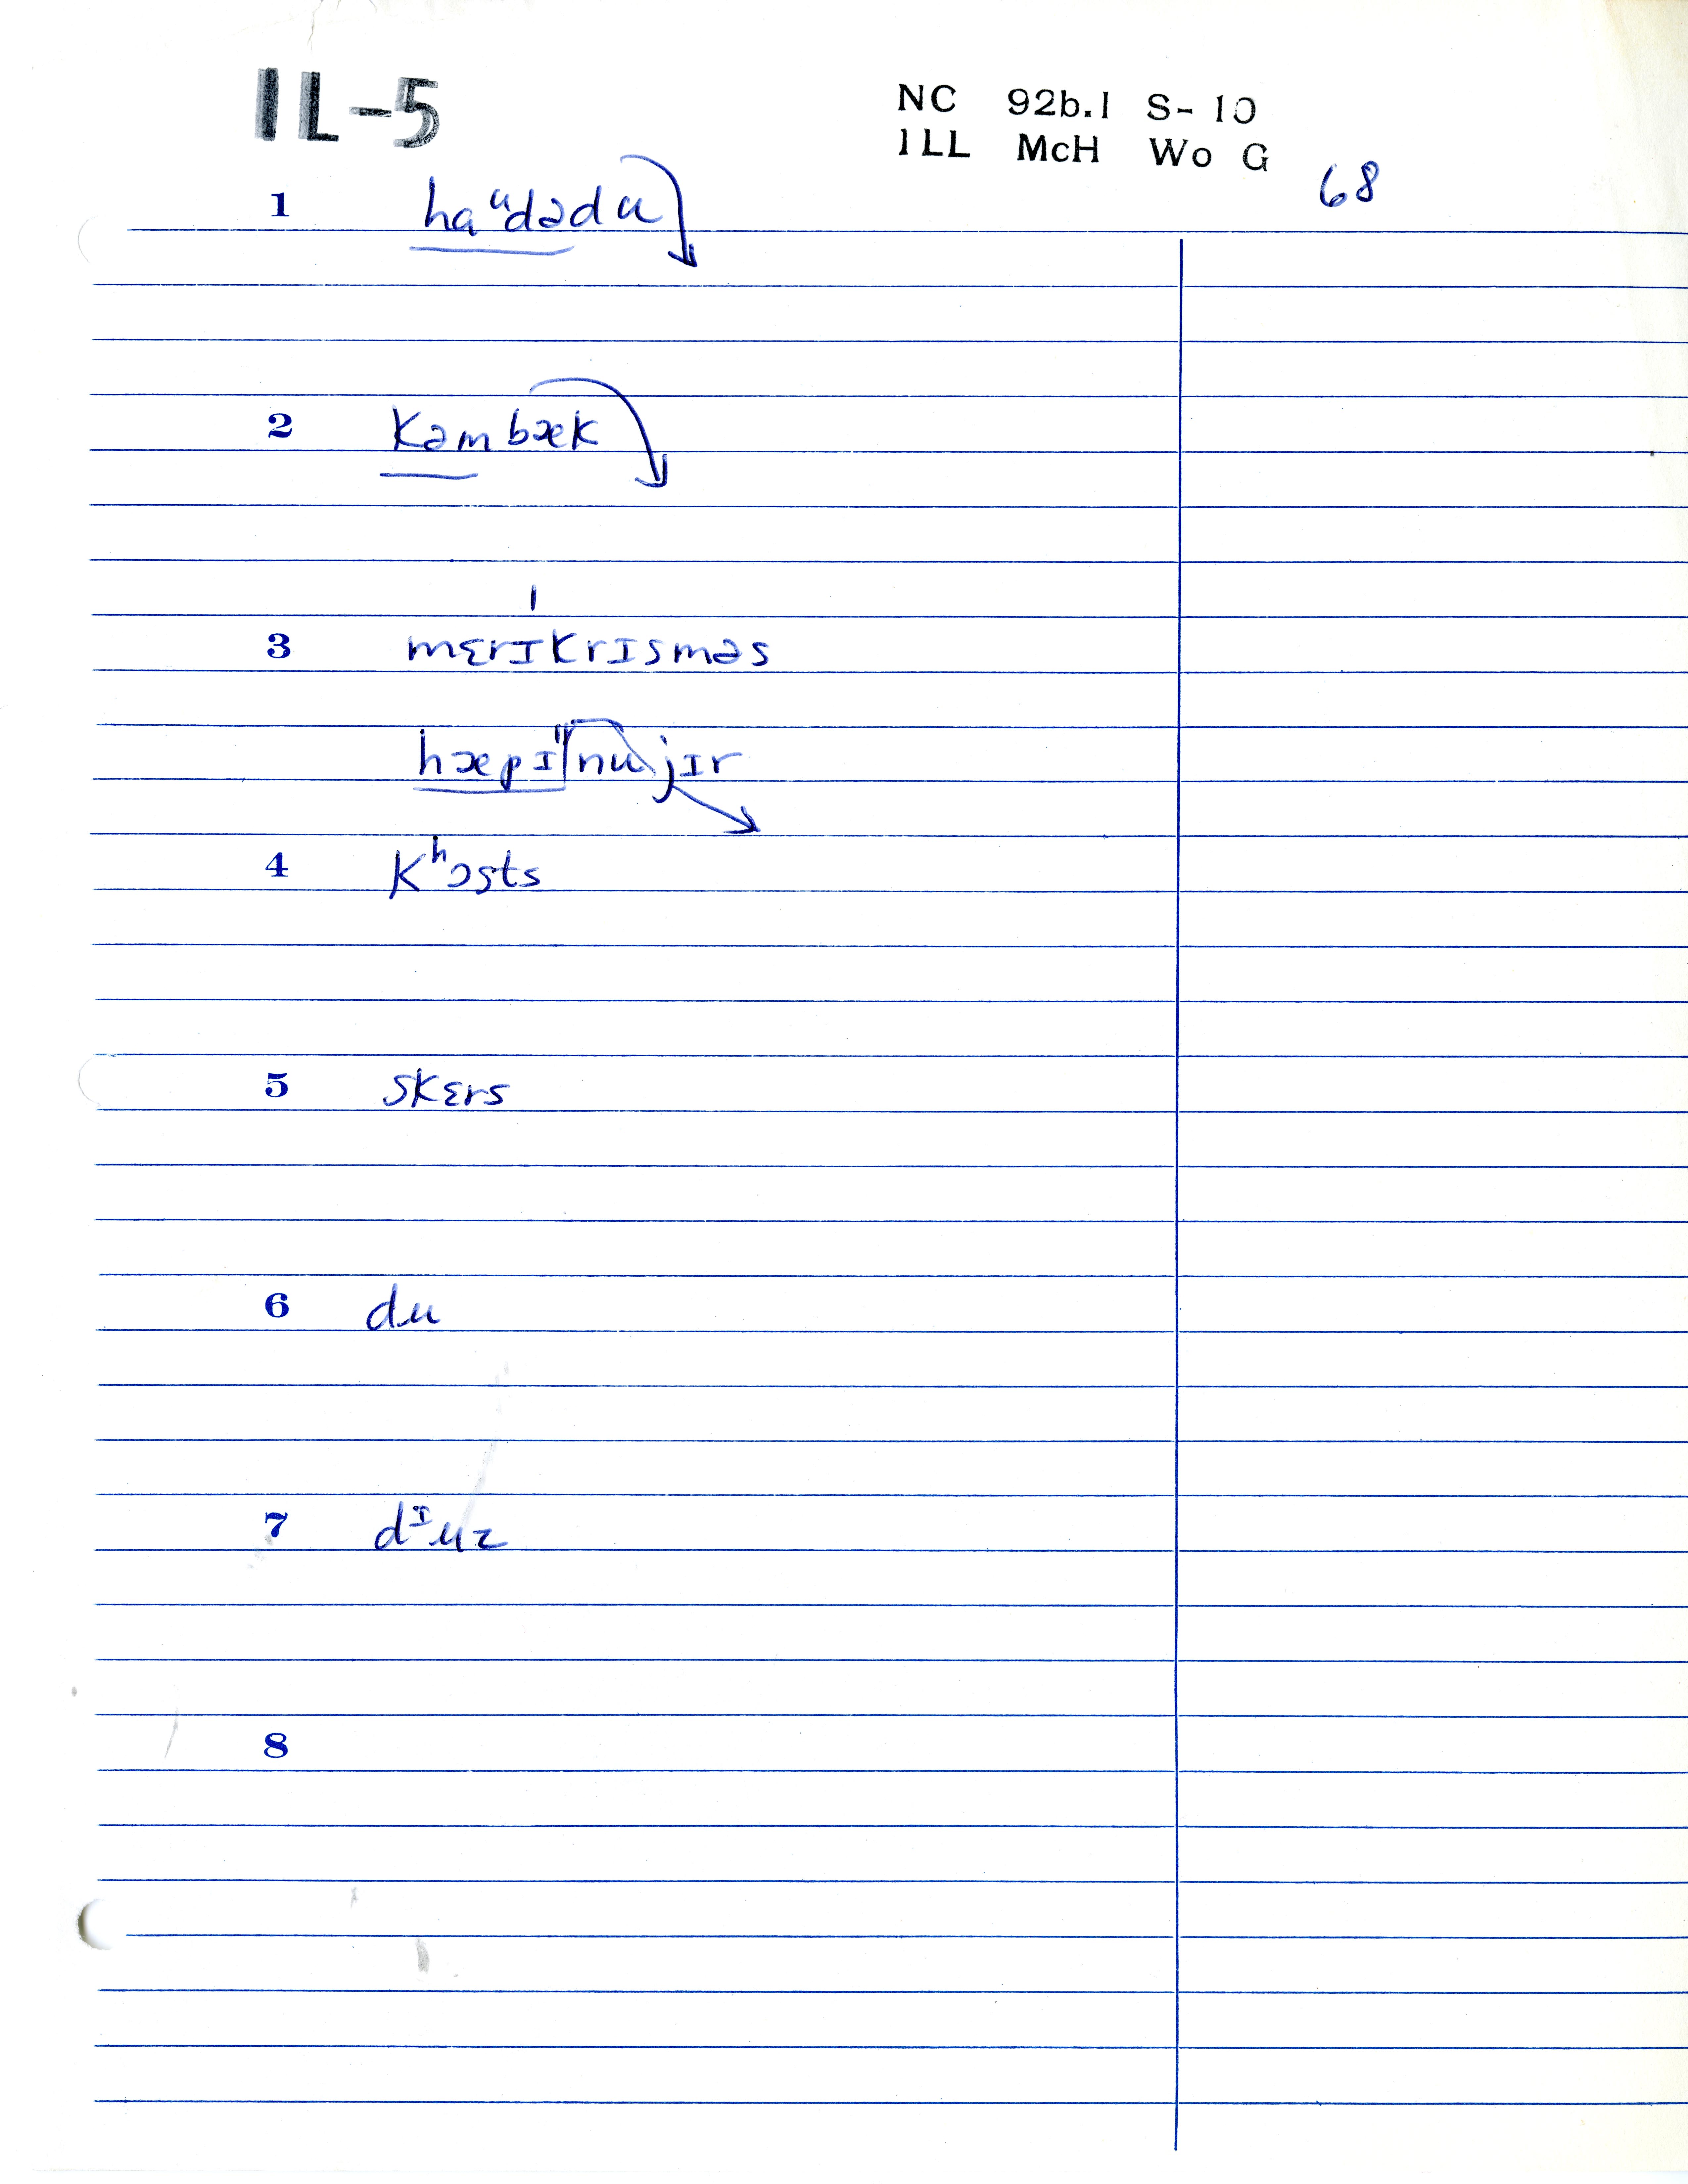 IL-5
NC 92b.1 S- 10
ILL McH Wo G
68
1 haᵘdədu
2 kəmbæk
3 mɛrɪkrɪsməs
hæpɪ nu jɪr
4 kʰɔsts
5 skɛrs
6 du
7 dᶦuz
8